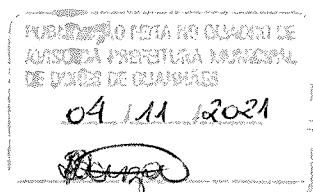 PUBLICAÇÃO FEITA NO QUADRO DE
AVISO DA PREFEITURA MUNICIPAL
DE DORES DE GUANHÃES
04 / 11 / 2021